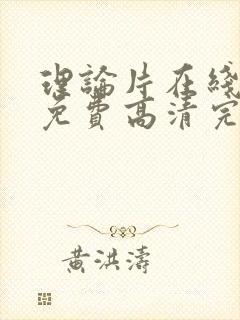 理論片在綫
免費高清完
黄洪濤